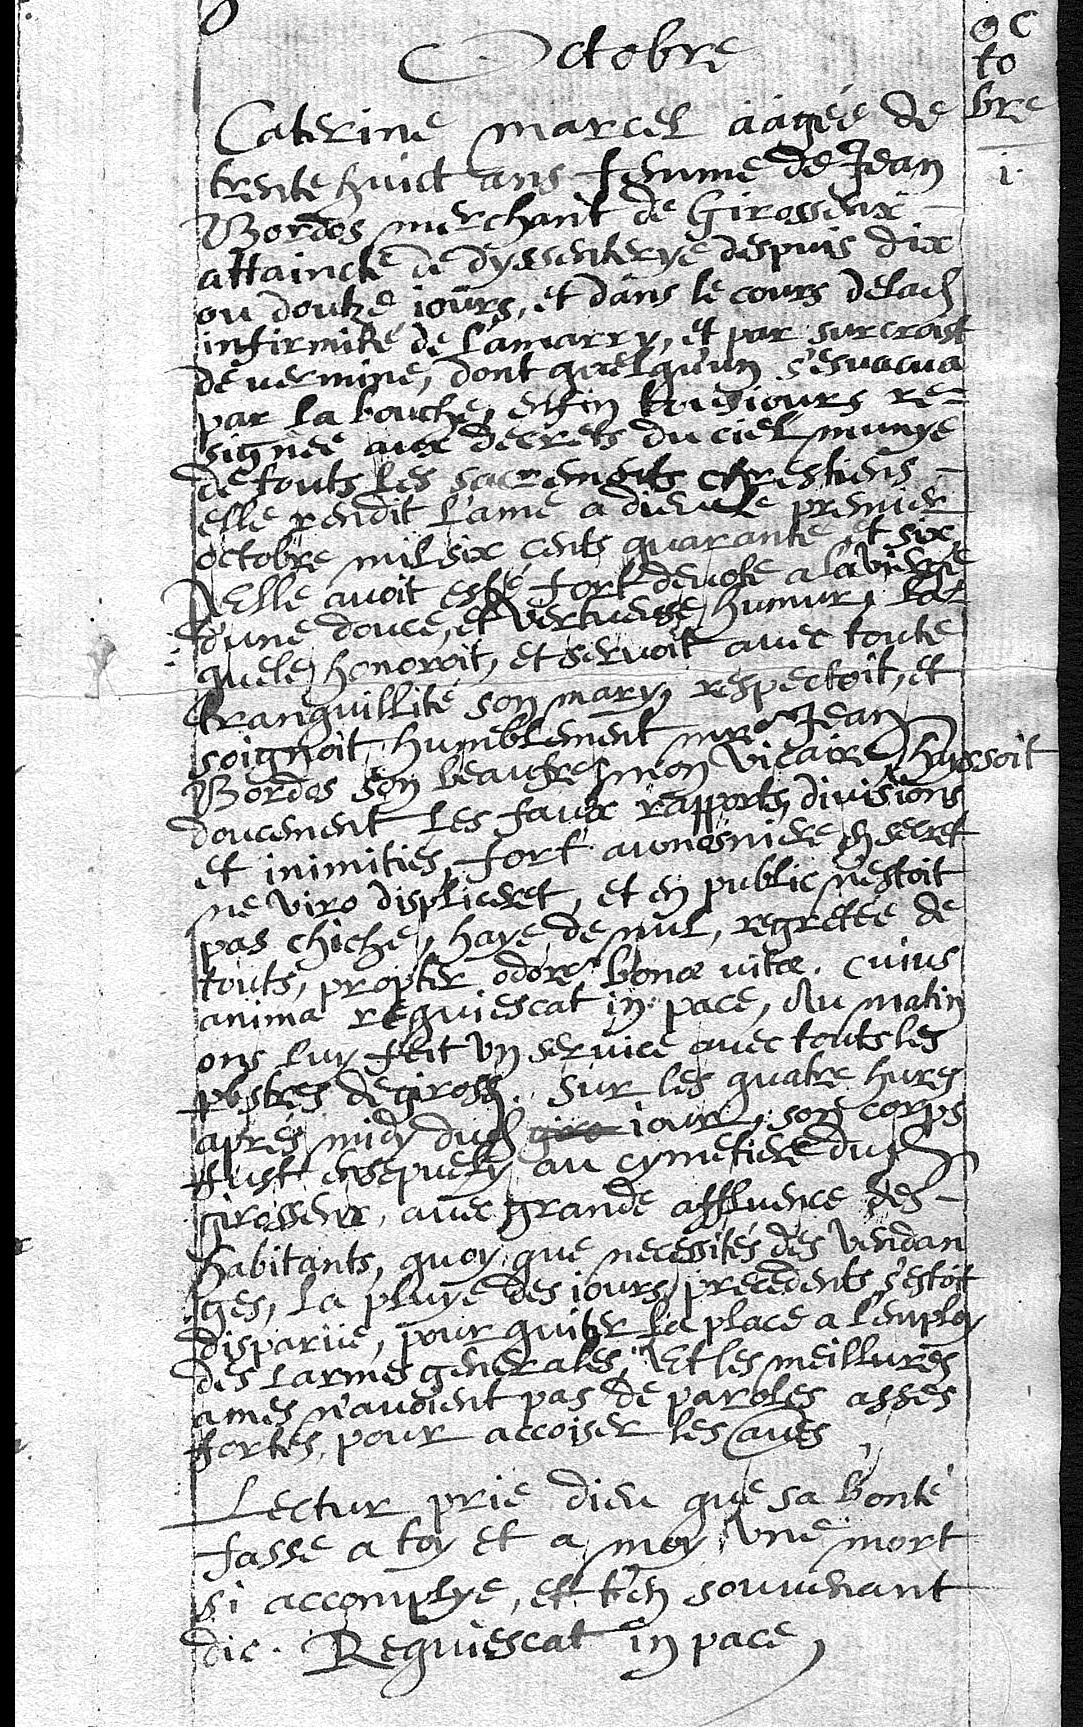 Octobre
oc
to
bre
1.
Caterine marcel aagée de
trente huict ans femme de Jean
Bordes merchant de Girossenx
attaincte de dyssenterye despuis dix
ou doutze iours, et dans le cours delad
infirmité de l'amarry, et par surcroist
de vermine, dont quelqu'un s'esvacua
par la bouche, enfin tousiours re=
signée aux decrets du ciel munye
de touts les sacrements chrestiens
elle rendit l'ame a dieu le premier
octobre mil six cents quarante et six,
Elle avoit esté fort devote a la vierge
d'une douce, et vertueuse humur, la=
quele honoroit, et servoit avec toute
tranquillité son mary, respectoit, et
soignoit humblement mre Jean
Bordes son beaufre mon vicaire, hayssoit
doucement les faux rapports, divisions
et inimitiés, fort aumosniere en secret
ne viro displiceret, et en public n'estoit
pas chiche, haye de nul, regretée de
touts, propter odorem bonæ vitæ. cuius
anima requiescat in pace, Au matin
ons luy feit un service avec touts les
pbstres de giross. Sur les quatre hures
aprés midy dud iour, son corps
fust ensepvely au cymetiere dud
girossenx, avec grande affluence des
habitants, quoy que necessités des vendan
ges, la pluye des iours precedents s'estoit
disparüe, pour quiter la place a l'employ
des larmes generales, Et les meillures
ames n'avoient pas de paroles asses
fortes, pour accoiser les
Lectur prie dieu que sa bonté
fasse a toy et a moy une mort
si accomplye, et t'en souvenant
dic. Requiescat in pace,